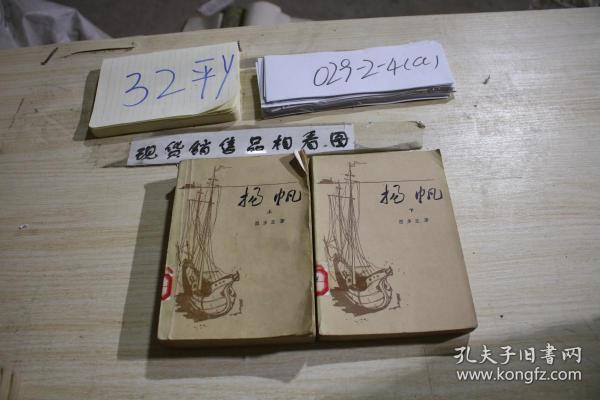 32平Y
029-2-4(a)
现货销售品相看图
扬帆
上
扬帆
下
孔夫子旧书网
www.kongfz.com